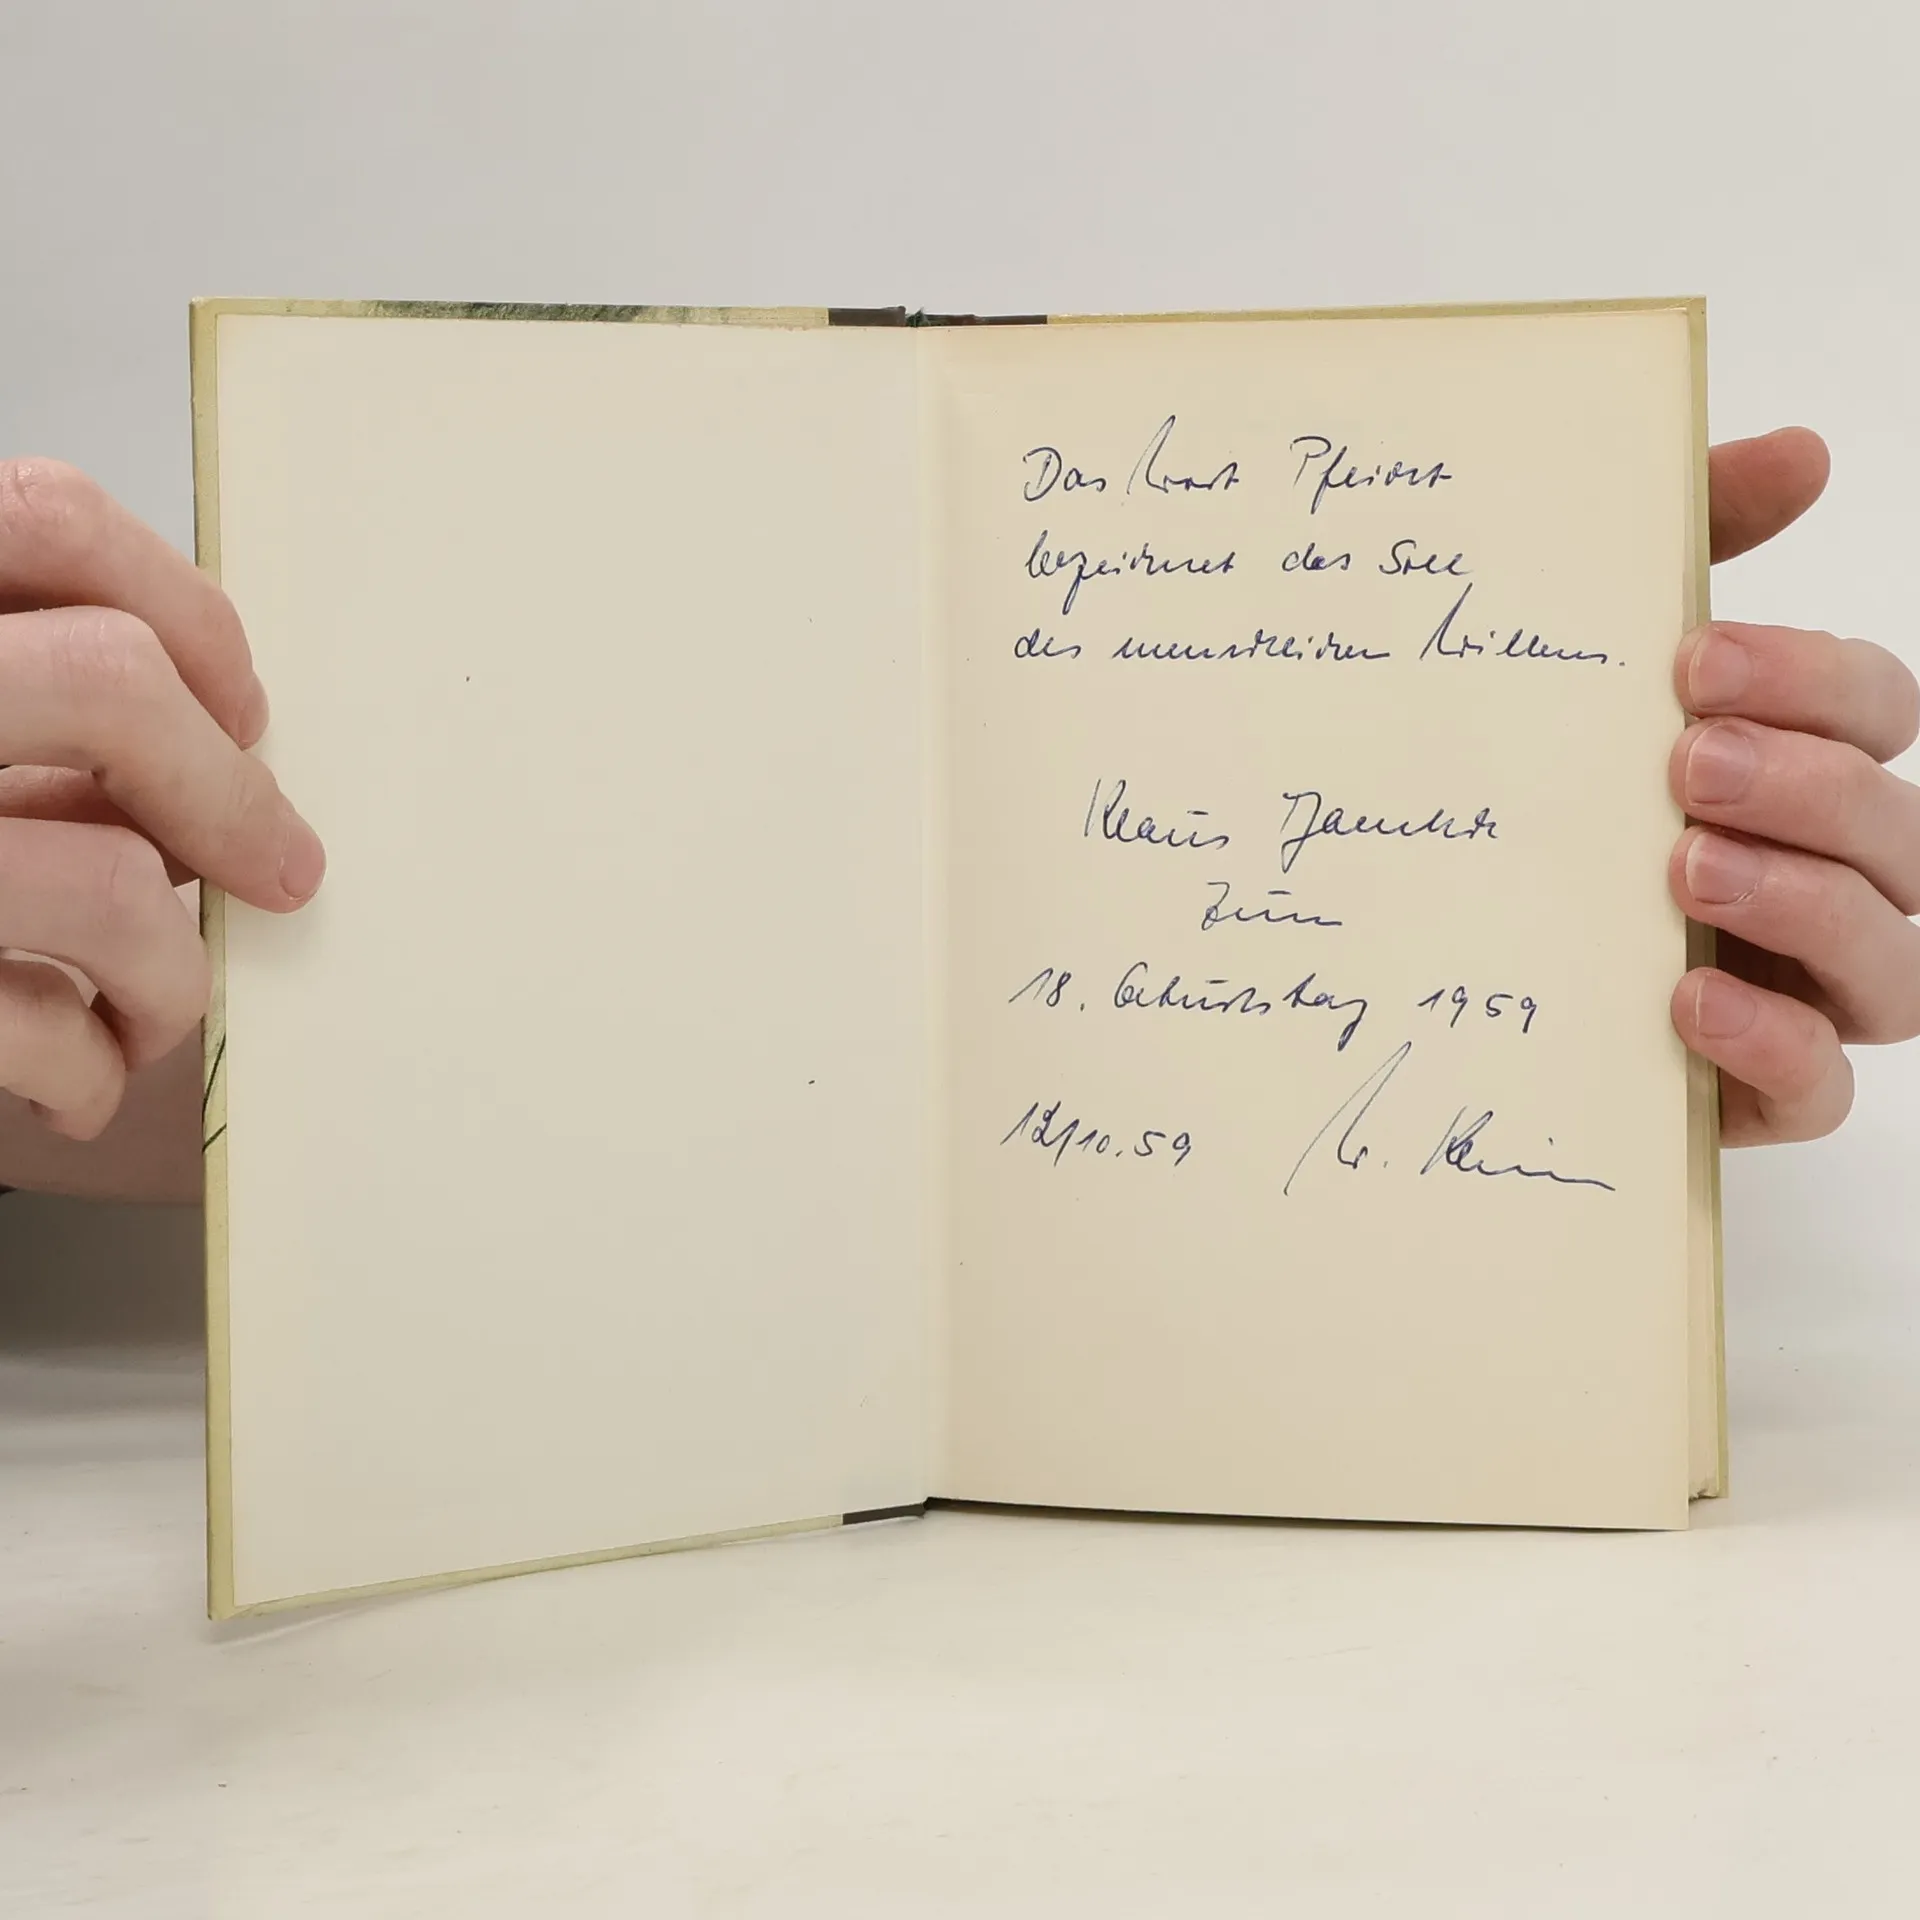 Das Wort Pflicht
bezeichnet das Soll
des menschlichen Willens.
Klaus
zum
18. Geburtstag 1959
12/10.59 W.